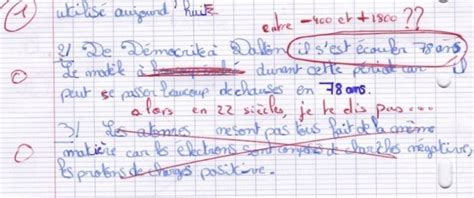 1
utilisé aujourd'huit
entre -400 et +1800 ??
2) De Démocrite à Dalton il s'est écouler 78 ans
Le modèl à durant cette périod car il
peut se passer beaucoup de chauses en 78 ans.
alors en 22 siècles, je te dis pas...
0
3) Les atomes ne sont pas tous fait de la même
matière car les electrons sont composé de charches négative,
0
les protons de charges positive.